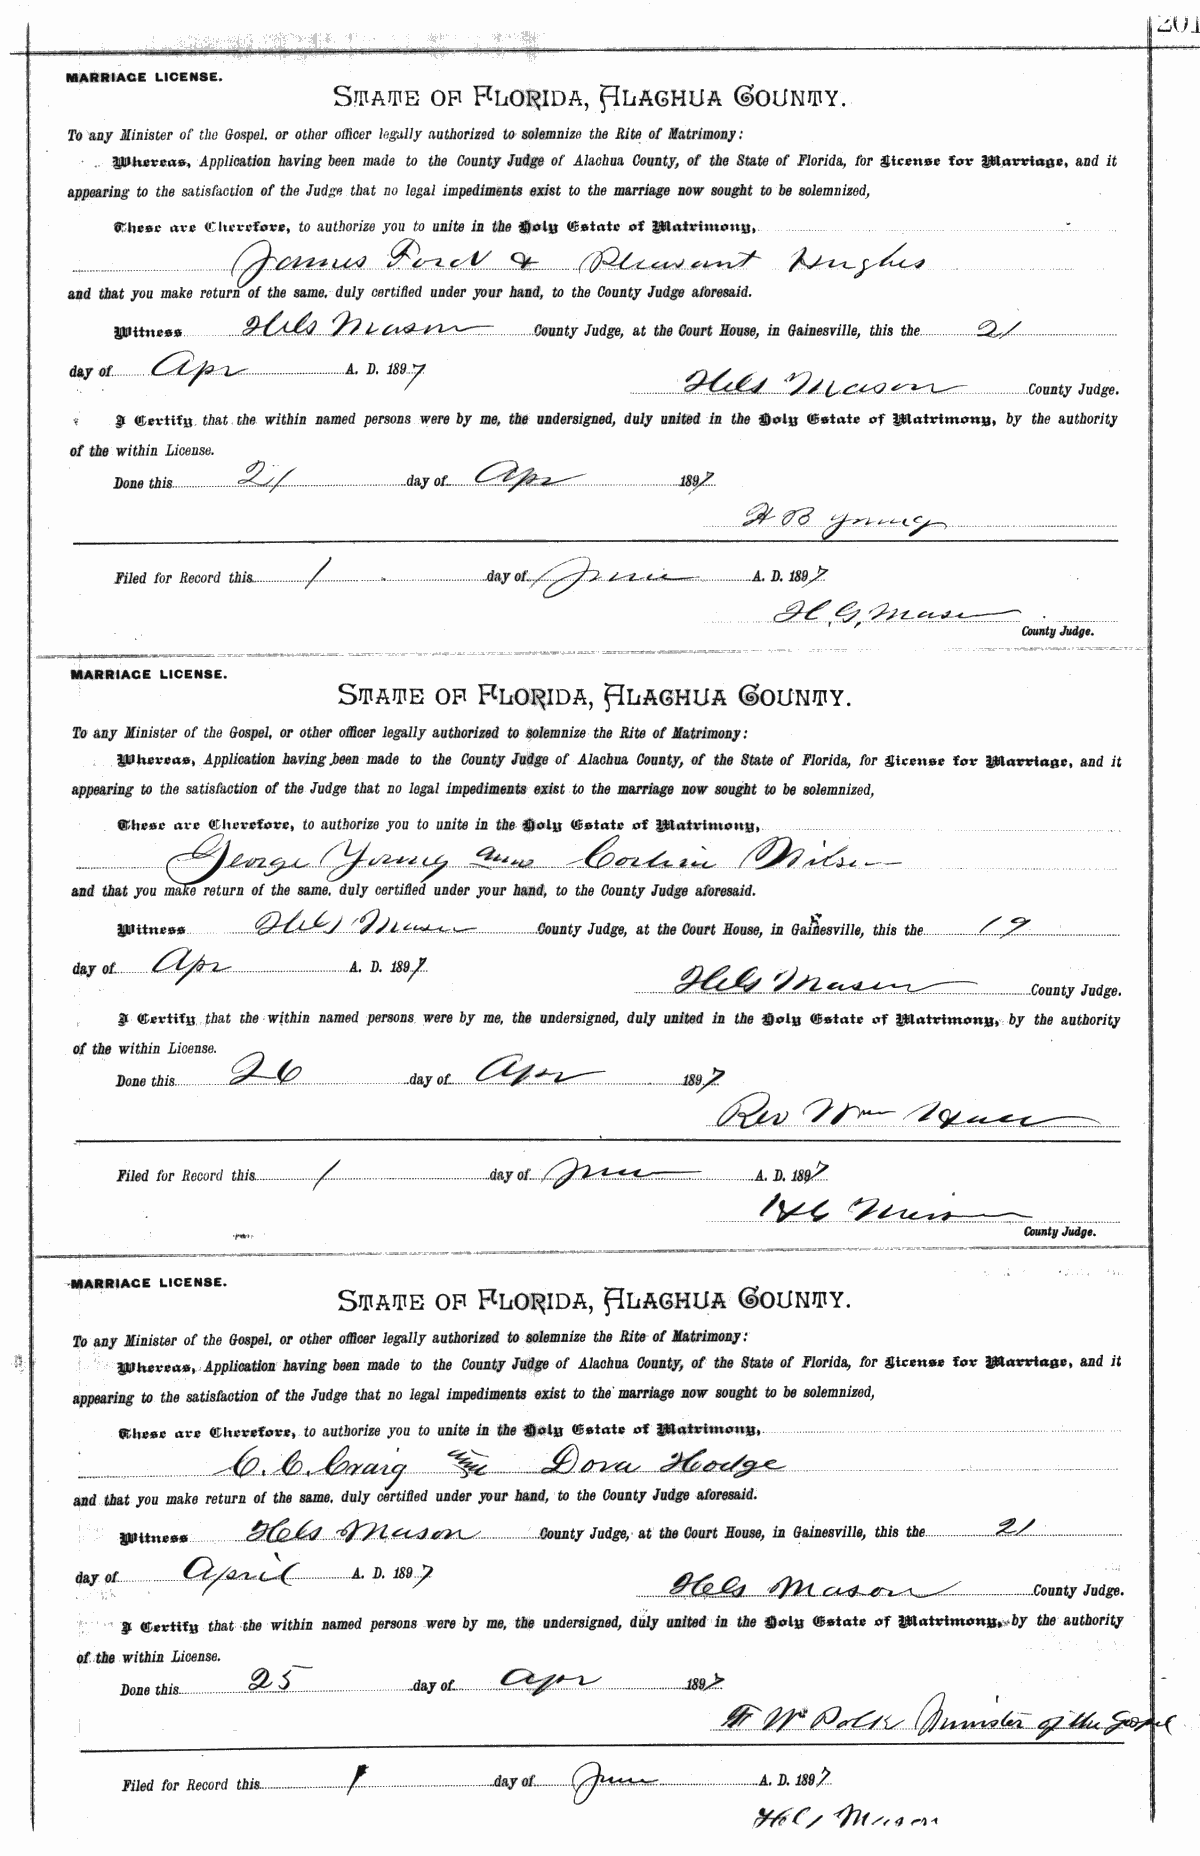 201
MARRIAGE LICENSE.
STATE OF FLORIDA, ALACHUA COUNTY.
To any Minister of the Gospel, or other officer legally authorized to solemnize the Rite of Matrimony:
Whereas, Application having been made to the County Judge of Alachua County, of the State of Florida, for License for Marriage, and it
appearing to the satisfaction of the Judge that no legal impediments exist to the marriage now sought to be solemnized,
These are Therefore, to authorize you to unite in the Holy Estate of Matrimony,
James Ford & Pleasant Hughes
and that you make return of the same, duly certified under your hand, to the County Judge aforesaid.
Witness Mason County Judge, at the Court House, in Gainesville, this the 21
day of Apr A. D. 1897
Mason County Judge.
I Certify that the within named persons were by me, the undersigned, duly united in the Holy Estate of Matrimony, by the authority
of the within License.
Done this 21 day of Apr 1897
H B Young
Filed for Record this 1 day of June A. D. 1897
H. G. Mason
County Judge.
MARRIAGE LICENSE.
STATE OF FLORIDA, ALACHUA COUNTY.
To any Minister of the Gospel, or other officer legally authorized to solemnize the Rite of Matrimony:
Whereas, Application having been made to the County Judge of Alachua County, of the State of Florida, for License for Marriage, and it
appearing to the satisfaction of the Judge that no legal impediments exist to the marriage now sought to be solemnized,
These are Therefore, to authorize you to unite in the Holy Estate of Matrimony,
George Young and Wilson
and that you make return of the same, duly certified under your hand, to the County Judge aforesaid.
Witness Mason County Judge, at the Court House, in Gainesville, this the 19
day of Apr A. D. 1897
Mason County Judge.
I Certify that the within named persons were by me, the undersigned, duly united in the Holy Estate of Matrimony, by the authority
of the within License.
Done this 26 day of Apr 1897
Rev Wm
Filed for Record this 1 day of June A. D. 1897
Mason
County Judge.
MARRIAGE LICENSE.
STATE OF FLORIDA, ALACHUA COUNTY.
To any Minister of the Gospel, or other officer legally authorized to solemnize the Rite of Matrimony:
Whereas, Application having been made to the County Judge of Alachua County, of the State of Florida, for License for Marriage, and it
appearing to the satisfaction of the Judge that no legal impediments exist to the marriage now sought to be solemnized,
These are Therefore, to authorize you to unite in the Holy Estate of Matrimony,
C. C. Craig and Dora Hodge
and that you make return of the same, duly certified under your hand, to the County Judge aforesaid.
Witness Mason County Judge, at the Court House, in Gainesville, this the 21
day of April A. D. 1897
Mason County Judge.
I Certify that the within named persons were by me, the undersigned, duly united in the Holy Estate of Matrimony, by the authority
of the within License.
Done this 25 day of Apr 1897
Polk Minister of the Gospel
Filed for Record this 1 day of June A. D. 1897
Mason